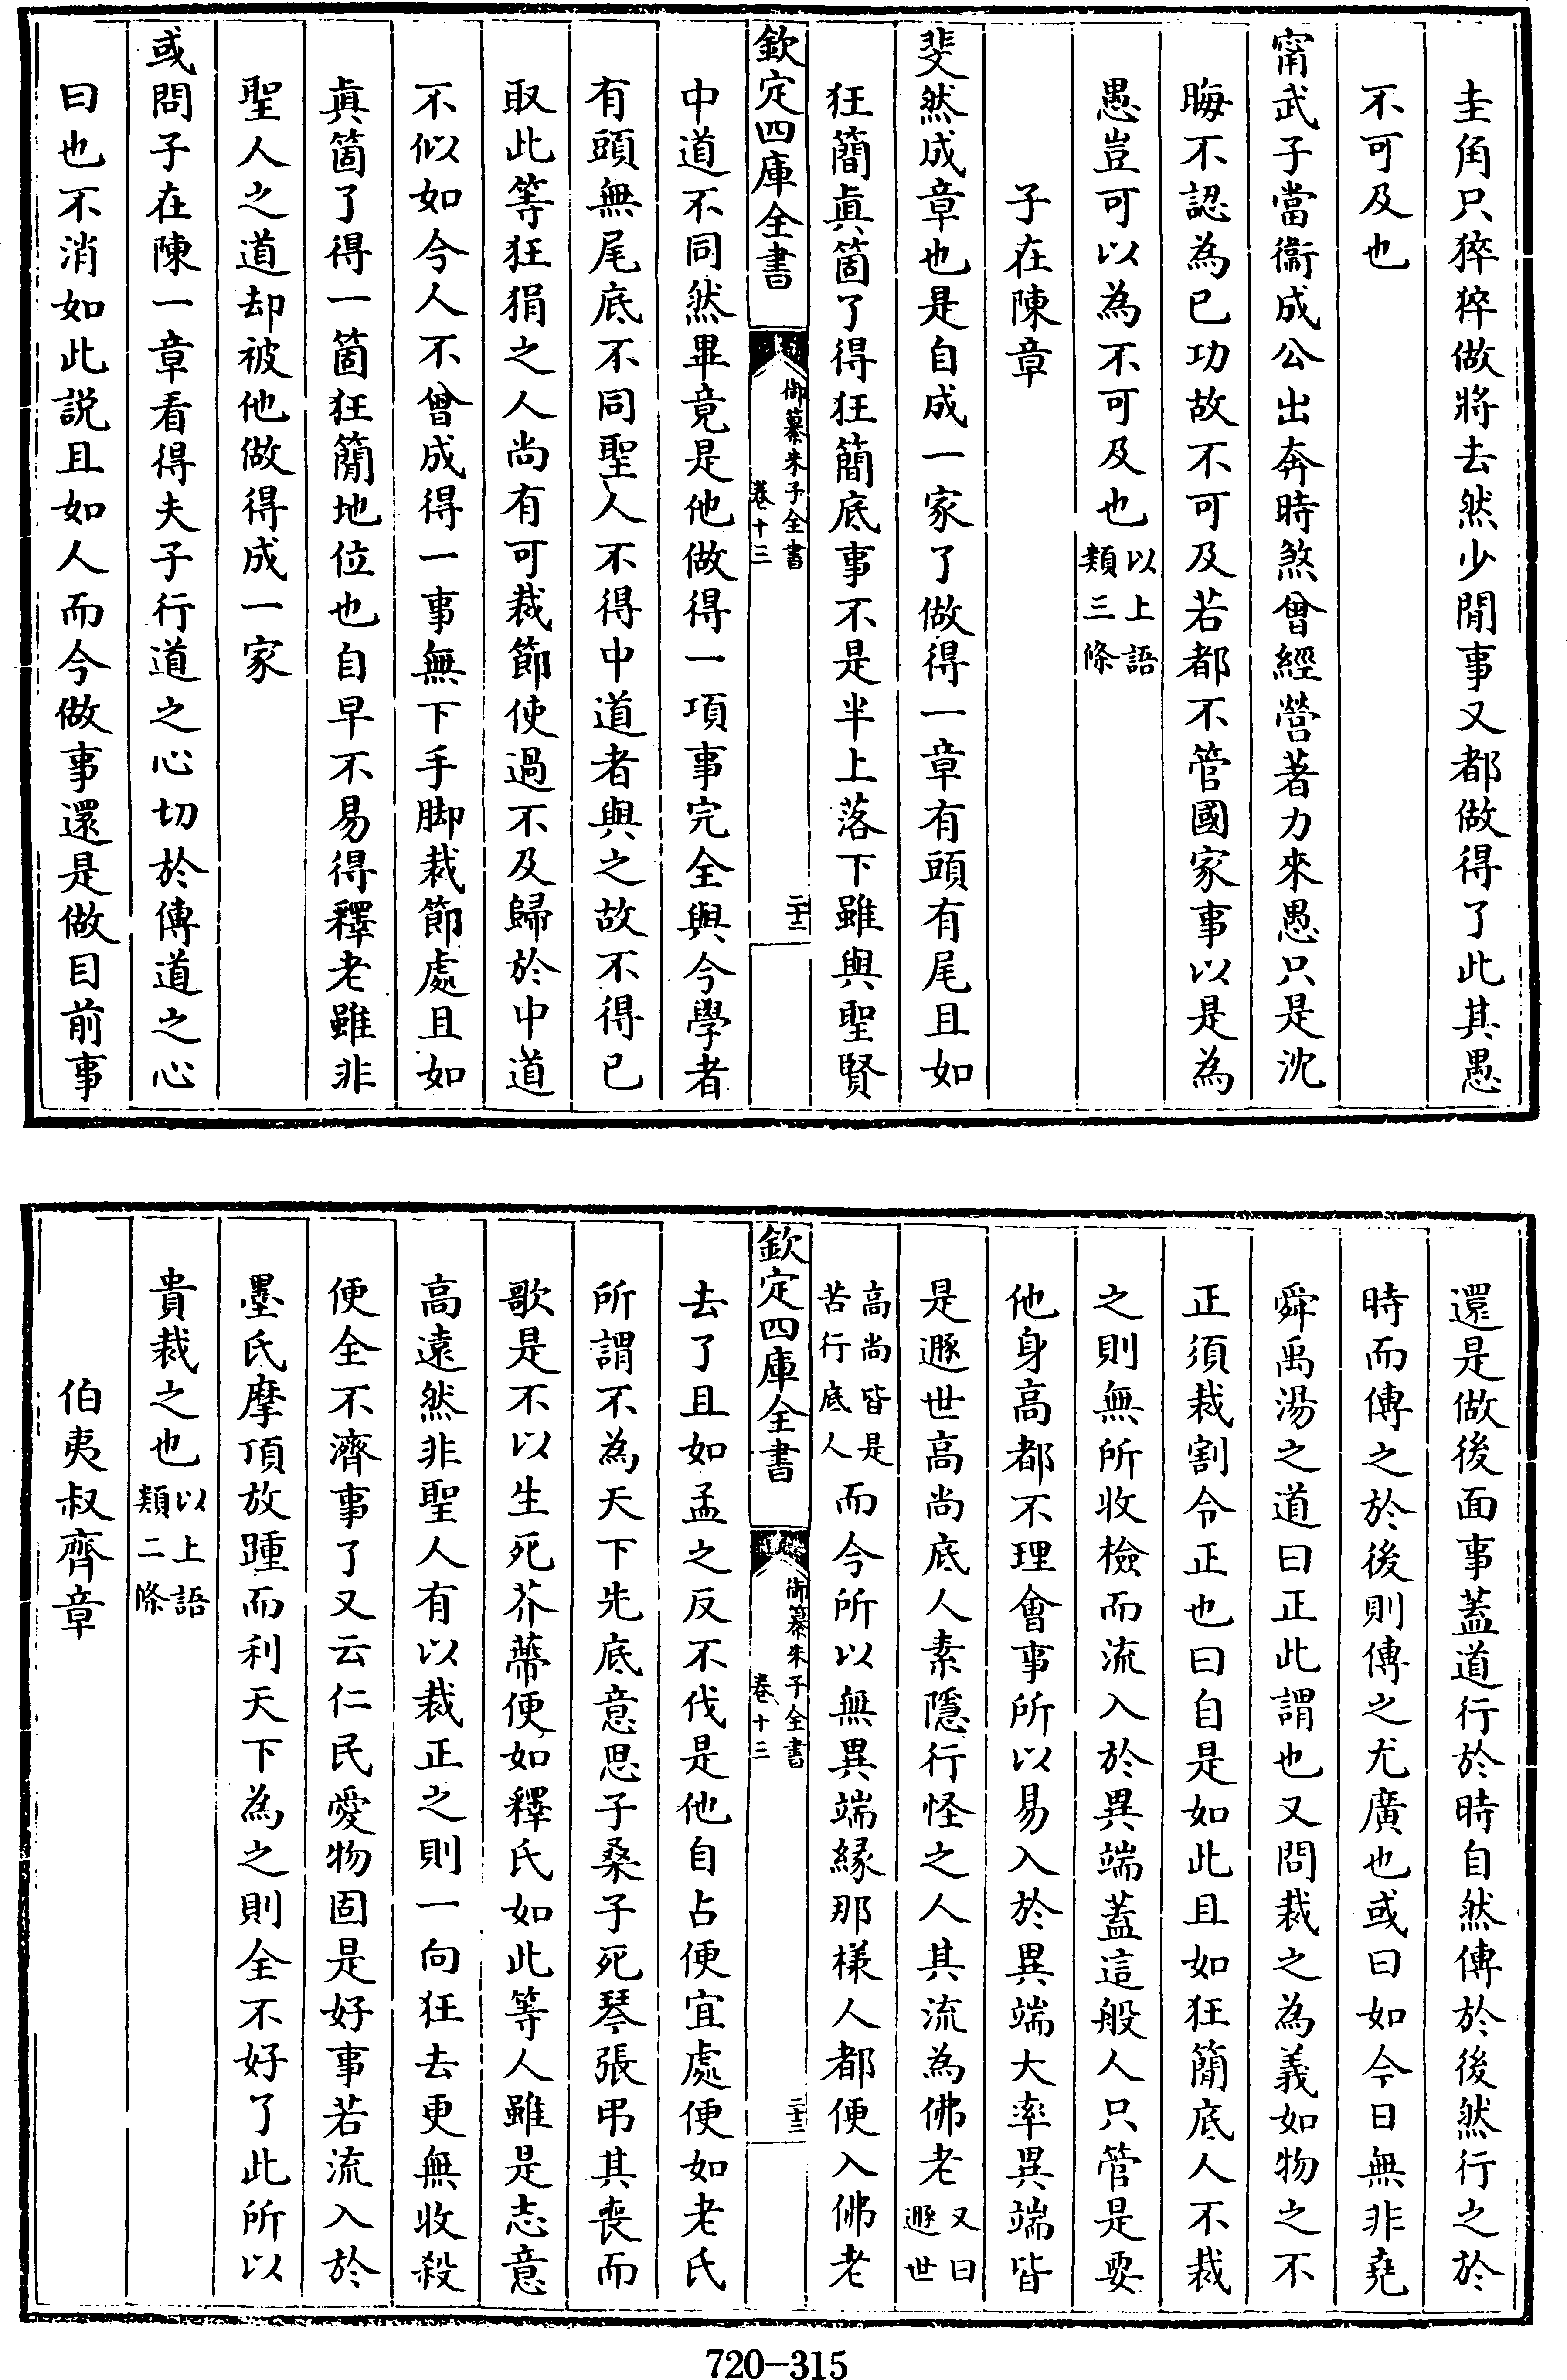 圭角只猝猝做將去然少間事又都做得了此其愚
不可及也
甯武子當衞成公出奔時煞曾經營著力來愚只是沈
晦不認為已功故不可及若都不管國家事以是為
愚豈可以為不可及也以上語類三條
子在陳章
斐然成章也是自成一家了做得一章有頭有尾且如
狂簡眞箇了得狂簡底事不是半上落下雖與聖賢
欽定四庫全書
御纂朱子全書
卷十三
二十二
中道不同然畢竟是他做得一項事完全與今學者
有頭無尾底不同聖人不得中道者與之故不得已
取此等狂狷之人尚有可裁節使過不及歸於中道
不似如今人不曾成得一事無下手脚裁節處且如
眞箇了得一箇狂簡地位也自早不易得釋老雖非
聖人之道却被他做得成一家
或問子在陳一章看得夫子行道之心切於傳道之心
曰也不消如此説且如人而今做事還是做目前事
還是做後面事蓋道行於時自然傳於後然行之於
時而傳之於後則傳之尤廣也或曰如今日無非堯
舜禹湯之道曰正此謂也又問裁之為義如物之不
正須裁割令正也曰自是如此且如狂簡底人不裁
之則無所收檢而流入於異端蓋這般人只管是要
他身高都不理會事所以易入於異端大率異端皆
是遯世高尚底人素隱行怪之人其流為佛老又曰遯世
高尚皆是苦行底人而今所以無異端緣那樣人都便入佛老
欽定四庫全書
御纂朱子全書
卷十三
二十三
去了且如孟之反不伐是他自占便宜處便如老氏
所謂不為天下先底意思子桑子死琴張弔其喪而
歌是不以生死芥蔕便如釋氏如此等人雖是志意
高遠然非聖人有以裁正之則一向狂去更無收殺
便全不濟事了又云仁民愛物固是好事若流入於
墨氏摩頂放踵而利天下為之則全不好了此所以
貴裁之也以上語類二條
伯夷叔齊章
720-315